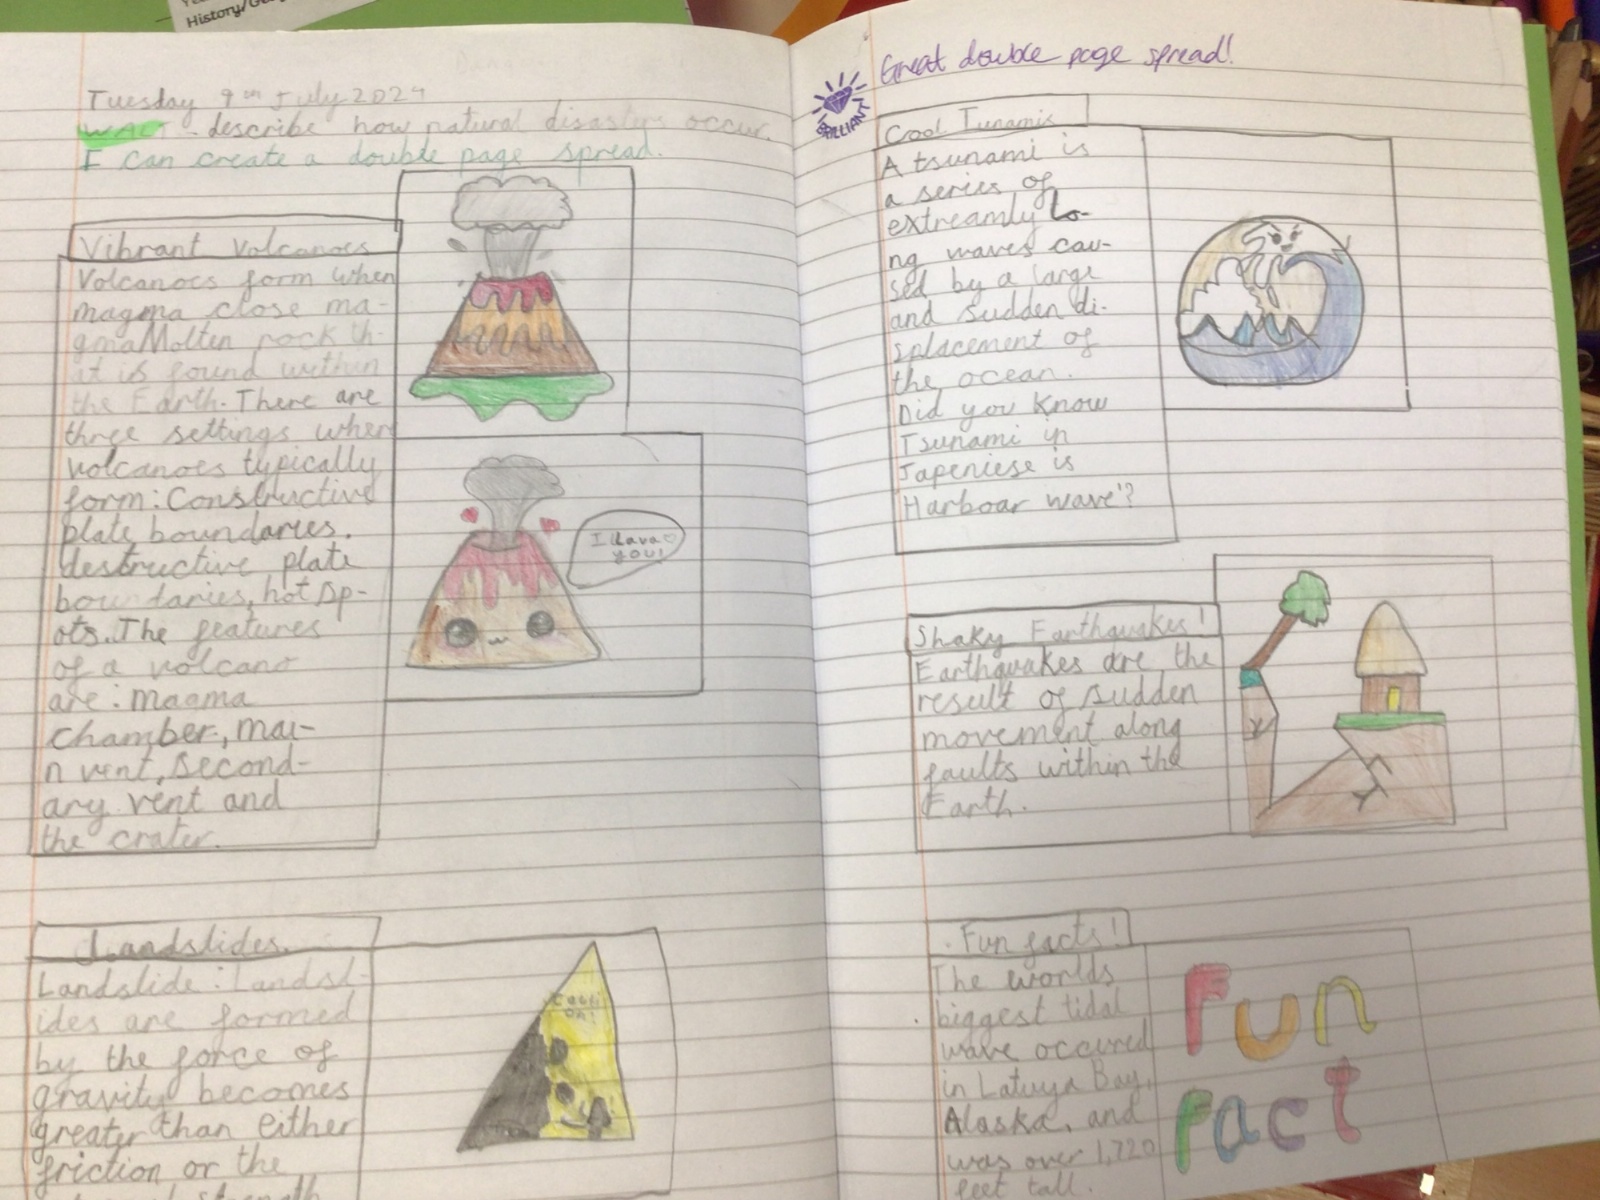 History/Geog
Tuesday 9th July 2024
WALT - describe how natural disasters occur.
I can create a double page spread.
Vibrant Volcanoes
Volcanoes form when
magma close ma-
gma Molten rock th-
at is found within
the Earth. There are
three settings where
volcanoes typically
form: Constructive
plate boundaries.
destructive plate
boundaries, hot sp-
ots. The features
of a volcano
are: magma
chamber, mai-
n vent, second-
ary vent and
the crater.
I Lava
you!
Landslides.
Landslide: Landsl-
ides are formed
by the force of
gravity becomes
greater than either
friction or the
strength
Cauti
on!
Great double page spread!
BRILLIANT
Cool Tunamis
A tsunami is
a series of
extreamly lo-
ng waves cau-
sed by a large
and sudden di-
splacement of
the ocean.
Did you know
Tsunami in
Japeniese is
Harboar wave'?
Shaky Earthquakes!
Earthquakes are the
result of sudden
movement along
faults within the
Earth.
Fun facts!
The worlds
biggest tidal
wave occured
in Latuya Bay,
Alaska, and
was over 1,720
feet tall.
Fun
Fact